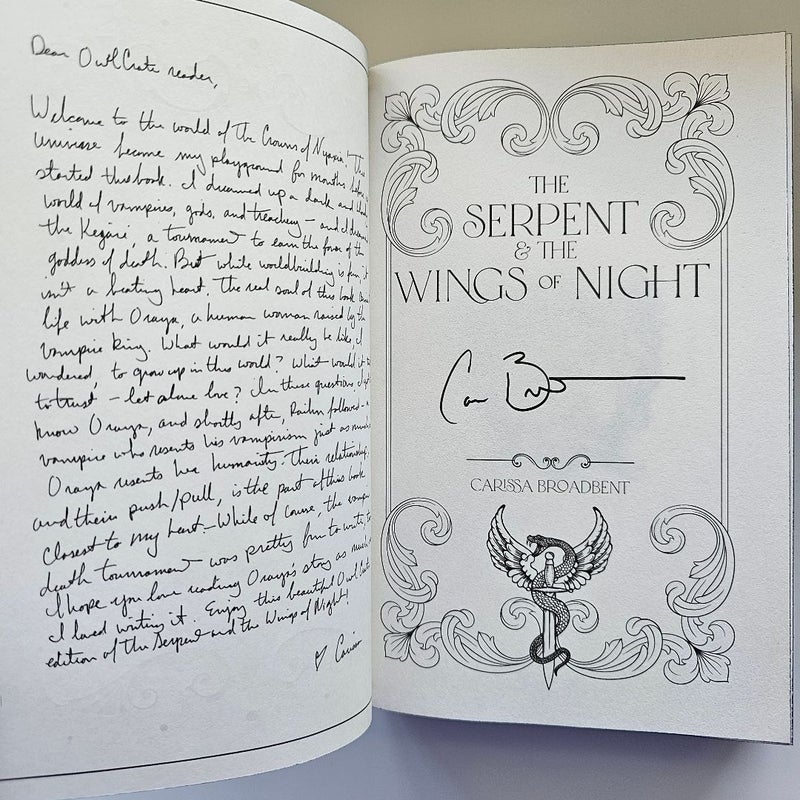 Dear OwlCrate reader,
Welcome to the world of The Crowns of Nyaxia! This
universe became my playground for months before
started this book. I dreamed up a dark and
world of vampires, gods, and treachery – and I dreamed
the Kejari, a tournament to earn the favor of the
goddess of death. But while worldbuilding is fun, it
isn't a beating heart. The real soul of this book
life with Oraya, a human woman raised by the
vampire king. What would it really be like, I
wondered, to grow up in this world? What would it
to trust – let alone love? In these questions I
know Oraya, and shortly after, Raihn followed – a
vampire who resents his vampirism just as much
Oraya resents her humanity. Their relationship,
and their push/pull, is the part of this book
closest to my heart. – While of course, the vampire
death tournament was pretty fun to write, too
I hope you love reading Oraya's story as much
I loved writing it. Enjoy this beautiful OwlCrate
edition of The Serpent and the Wings of Night!
♥ Carissa
THE
SERPENT
& THE
WINGS OF NIGHT
CARISSA BROADBENT